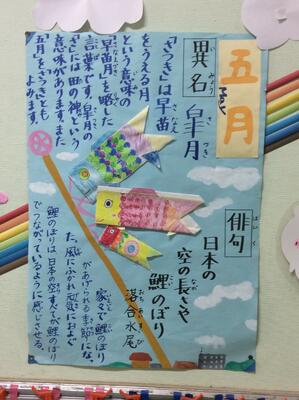 五月
異名 皐月
いみょう さつき
「さつき」は早苗
さなえ
をうえる月
という意味の
「早苗月」を略した
言葉です。皐月の
「さ」には田の神という
意味があります。また
五月を「さつき」とも
よみます。
俳句
はいく
日本の
空の長さや
なが
鯉のぼり
こい
落合水尾
おちあいすいび
家々で鯉のぼり
があげられる季節にな
た。風にふかれ元気におよぐ
鯉のぼりは、日本の空すべてが鯉のぼり
でつながっているように感じさせる。